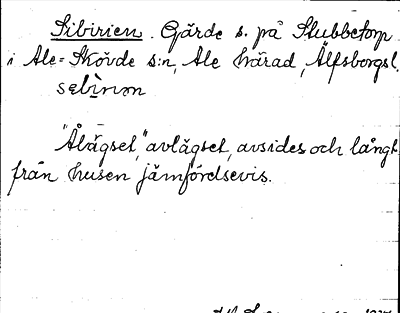 Sibirien. Gärde s. på Stubbetorp
i Ale=Skövde s:n, Ale härad, Älfsborgs l.
sebìrıon
"Åłägset," avlägset, avsides och långt
från husen jämförelsevis.